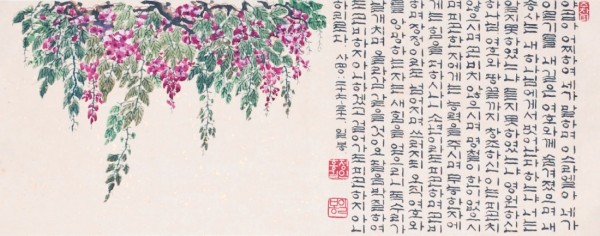 야곱아 어찌하여 네가 말하며 이스라엘아 네가
이르기를 내 길은 여호와께 숨겨졌으며 내
송사는 내 하나님에게서 벗어난다 하느냐 너는
알지 못하였느냐 듣지 못하였느냐 영원하신
하나님 여호와 땅 끝까지 창조하신 이는 피곤
하지 않으시며 곤비하지 않으시며 명철이 한이 없으시며
피곤한 자에게는 능력을 주시며 무능한 자에
게는 힘을 더하시나니 소년이라도 피곤하며 곤
비하며 장정이라도 넘어지며 쓰러지되 오직 여호와
를 앙망하는 자는 새 힘을 얻으리니 독수리가
날개치며 올라감 같을 것이요 달음박질하여
도 곤비하지 아니하겠고 걸어가도 피곤하지 아니
하리로다